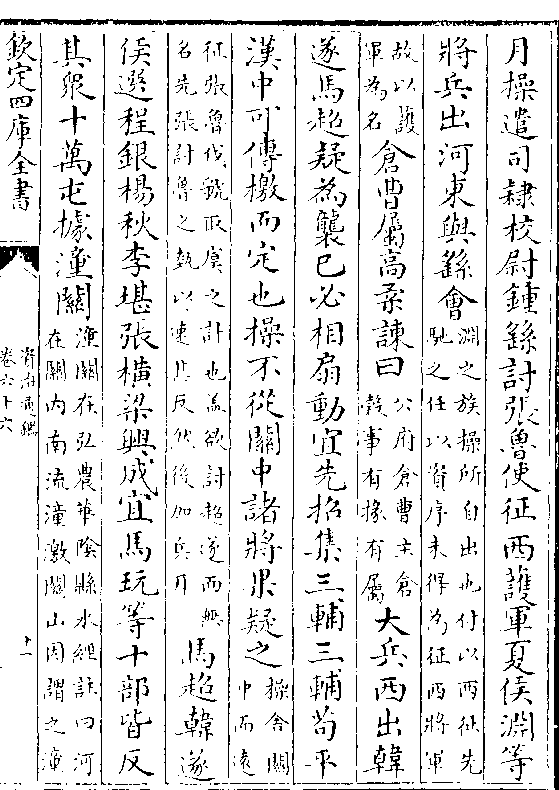 月操遣司隸校尉鍾繇討張魯使征西護軍夏侯淵等
將兵出河東與繇會
淵之族操所自出也付以西征先
馳之任以資序未得為征西將軍
故以護
軍為名
倉曹屬高柔諫曰
公府倉曹主倉
穀事有掾有屬
大兵西出韓
遂馬超疑為襲已必相扇動宜先招集三輔三輔苟平
漢中可傳檄而定也操不從關中諸將果疑之
操舍關
中而遠
征張魯伐虢取虞之計也盖欲討超遂而無
名先張討魯之執以速其反然後加兵耳
馬超韓遂
侯選程銀楊秋李堪張橫梁興成宜馬玩等十部皆反
其衆十萬屯據潼關
潼關在弘農華陰縣水經註曰河
在關内南流潼激關山因謂之潼
欽定四庫全書
資治通鑑
卷六十六
十一